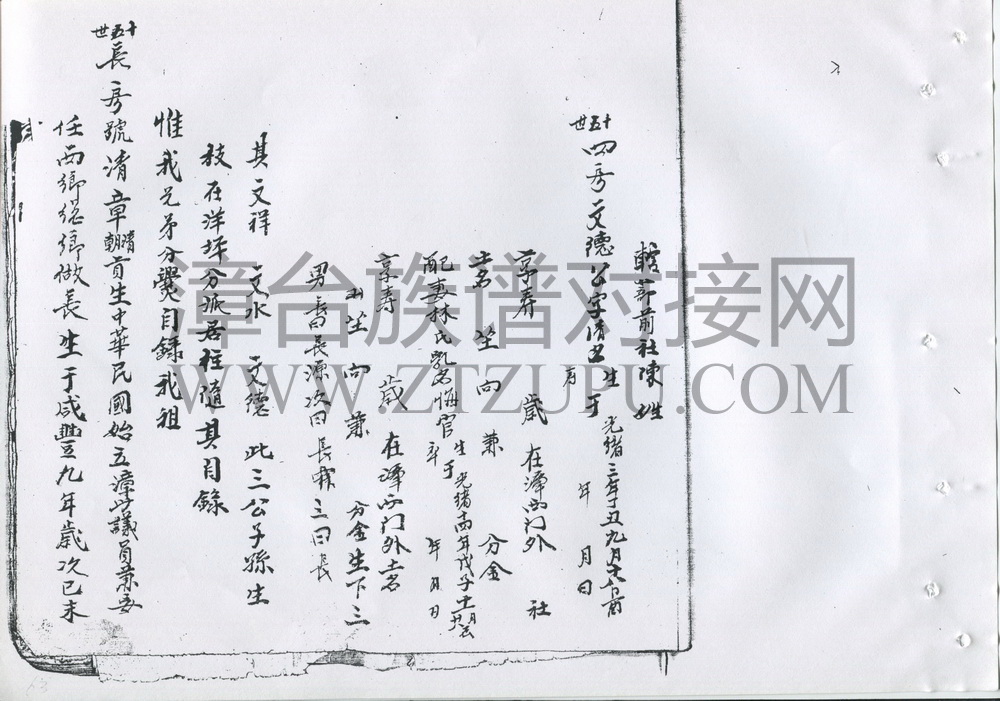 轄莭前社陳姓
十五世 四房文德公字清丑 生于 光緒三年丁丑九月 日
卒 年 月 日
享壽 歲 在漳西门外 社
土名 坐 向 兼 分金
配妻林氏 悔官 生于 光緒 年戊子十一月
卒 年 月 日
享寿 歲 在漳西门外土名
坐 向 兼 分金生下三
男長曰長源次曰長霖三曰長
其文祥 文水 文德 此三公子孫生
枝在洋坪分派居住随其目錄
惟我兄弟分爨目錄我祖
十五世 長房號清章 清朝貢生中華民國始立漳 議員兼
任西鄉 鄉做長 生于咸豐九年歲次己未
漳台族谱对接网
WWW.ZTZUPU.COM